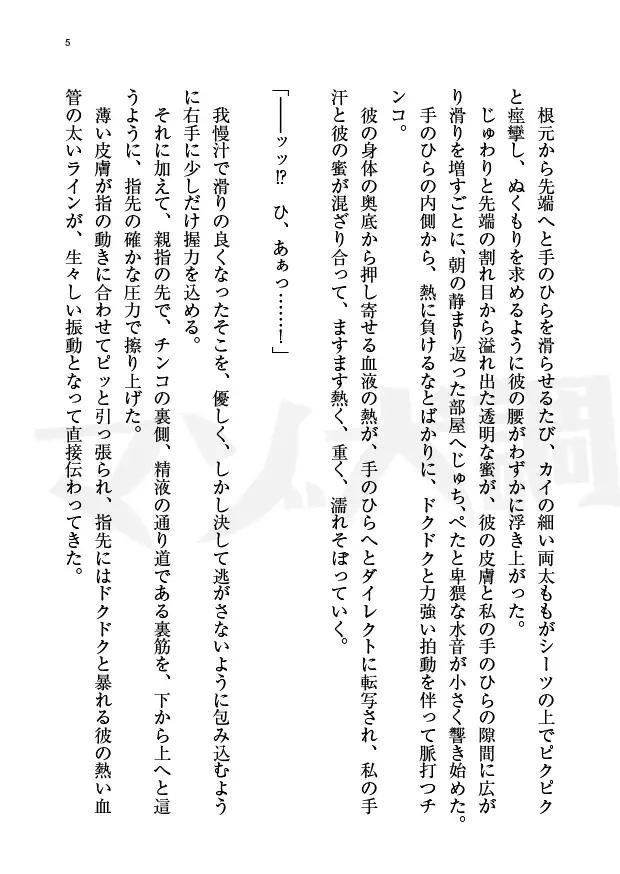 5
根元から先端へと手のひらを滑らせるたび、カイの細い両太ももがシーツの上でピクピク
と痙攣し、ぬくもりを求めるように彼の腰がわずかに浮き上がった。
じゅわりと先端の割れ目から溢れ出た透明な蜜が、彼の皮膚と私の手のひらの隙間に広が
り滑りを増すごとに、朝の静まり返った部屋へじゅち、ぺたと卑猥な水音が小さく響き始めた。
手のひらの内側から、熱に負けるなとばかりに、ドクドクと力強い拍動を伴って脈打つチ
ンコ。
彼の身体の奥底から押し寄せる血液の熱が、手のひらへとダイレクトに転写され、私の手
汗と彼の蜜が混ざり合って、ますます熱く、重く、濡れそぼっていく。
「――ッッ!?　ひ、あぁっ……！」
我慢汁で滑りの良くなったそこを、優しく、しかし決して逃がさないように包み込むよう
に右手に少しだけ握力を込める。
それに加えて、親指の先で、チンコの裏側、精液の通り道である裏筋を、下から上へと這
うように、指先の確かな圧力で擦り上げた。
薄い皮膚が指の動きに合わせてピッと引っ張られ、指先にはドクドクと暴れる彼の熱い血
管の太いラインが、生々しい振動となって直接伝わってきた。